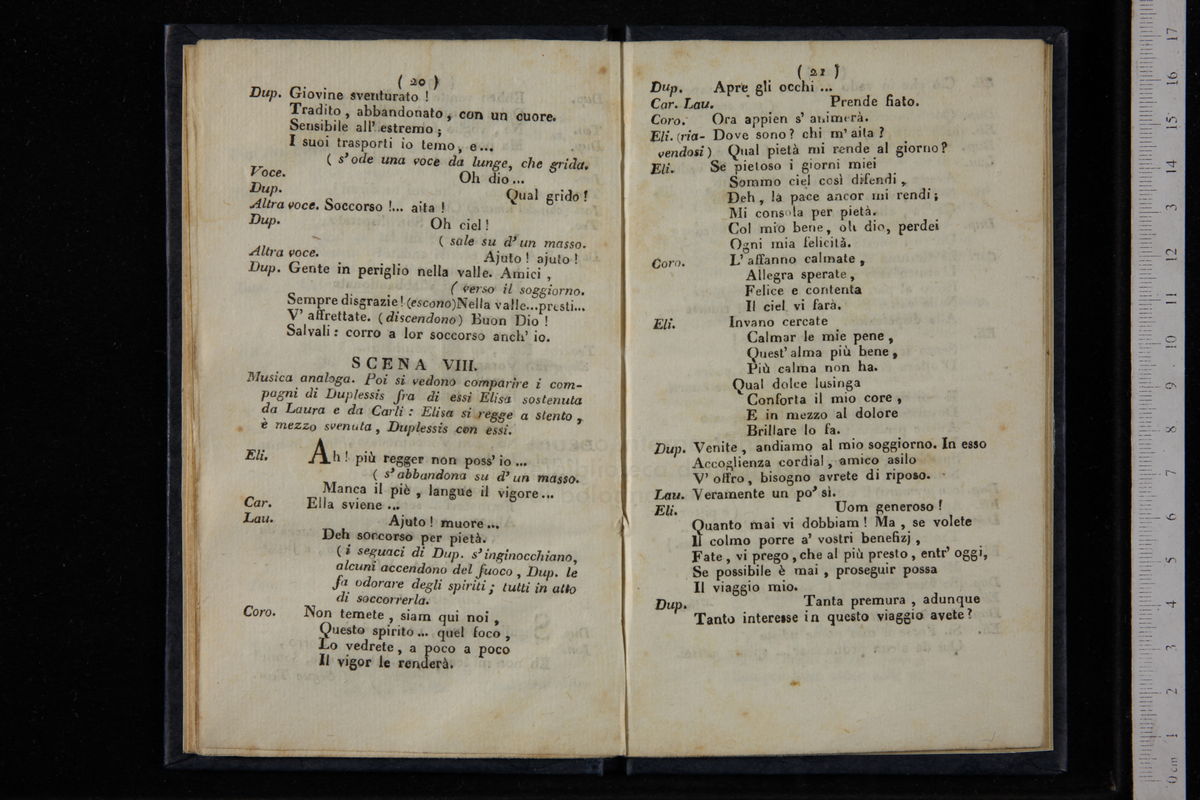 ( 20 )
Dup. Giovine sventurato !
Tradito , abbandonato , con un cuore.
Sensibile all' estremo ;
I suoi trasporti io temo, e...
( s'ode una voce da lunge, che grida.
Voce. Oh dio...
Dup. Qual grido !
Altra voce. Soccorso !... aita !
Dup. Oh ciel !
( sale su d'un masso.
Altra voce. Ajuto ! ajuto !
Dup. Gente in periglio nella valle. Amici ,
( verso il soggiorno.
Sempre disgrazie! (escono) Nella valle...presti...
V' affrettate. (discendono) Buon Dio !
Salvali : corro a lor soccorso anch' io.
SCENA VIII.
Musica analoga. Poi si vedono comparire i com-
pagni di Duplessis fra di essi Elisa sostenuta
da Laura e da Carli : Elisa si regge a stento ,
è mezzo svenuta , Duplessis con essi.
Eli. Ah ! più regger non poss' io ...
( s'abbandona su d' un masso.
Manca il piè , langue il vigore...
Car. Ella sviene ...
Lau. Ajuto ! muore...
Deh soccorso per pietà.
( i seguaci di Dup. s'inginocchiano,
alcuni accendono del fuoco , Dup. le
fa odorare degli spiriti ; tutti in atto
di soccorrerla.
Coro. Non temete , siam qui noi ,
Questo spirito ... quel foco ,
Lo vedrete , a poco a poco
Il vigor le renderà.
( 21 )
Dup. Apre gli occhi ...
Car. Lau. Prende fiato.
Coro. Ora appien s' animerà.
Eli. (ria- Dove sono ? chi m' aita ?
vendosi ) Qual pietà mi rende al giorno ?
Eli. Se pietoso i giorni miei
Sommo ciel così difendi ,
Deh , la pace ancor mi rendi ;
Mi consola per pietà.
Col mio bene, oh dio, perdei
Ogni mia felicità.
Coro. L' affanno calmate ,
Allegra sperate ,
Felice e contenta
Il ciel vi farà.
Eli. Invano cercate
Calmar le mie pene ,
Quest' alma più bene ,
Più calma non ha.
Qual dolce lusinga
Conforta il mio core ,
E in mezzo al dolore
Brillare lo fa.
Dup. Venite , andiamo al mio soggiorno. In esso
Accoglienza cordial , amico asilo
V' offro , bisogno avrete di riposo.
Lau. Veramente un po' sì.
Eli. Uom generoso !
Quanto mai vi dobbiam ! Ma , se volete
Il colmo porre a' vostri benefizj ,
Fate , vi prego , che al più presto , entr' oggi,
Se possibile è mai , proseguir possa
Il viaggio mio.
Dup. Tanta premura , adunque
Tanto interesse in questo viaggio avete ?
0 cm 1 2 3 4 5 6 7 8 9 10 11 12 13 14 15 16 17